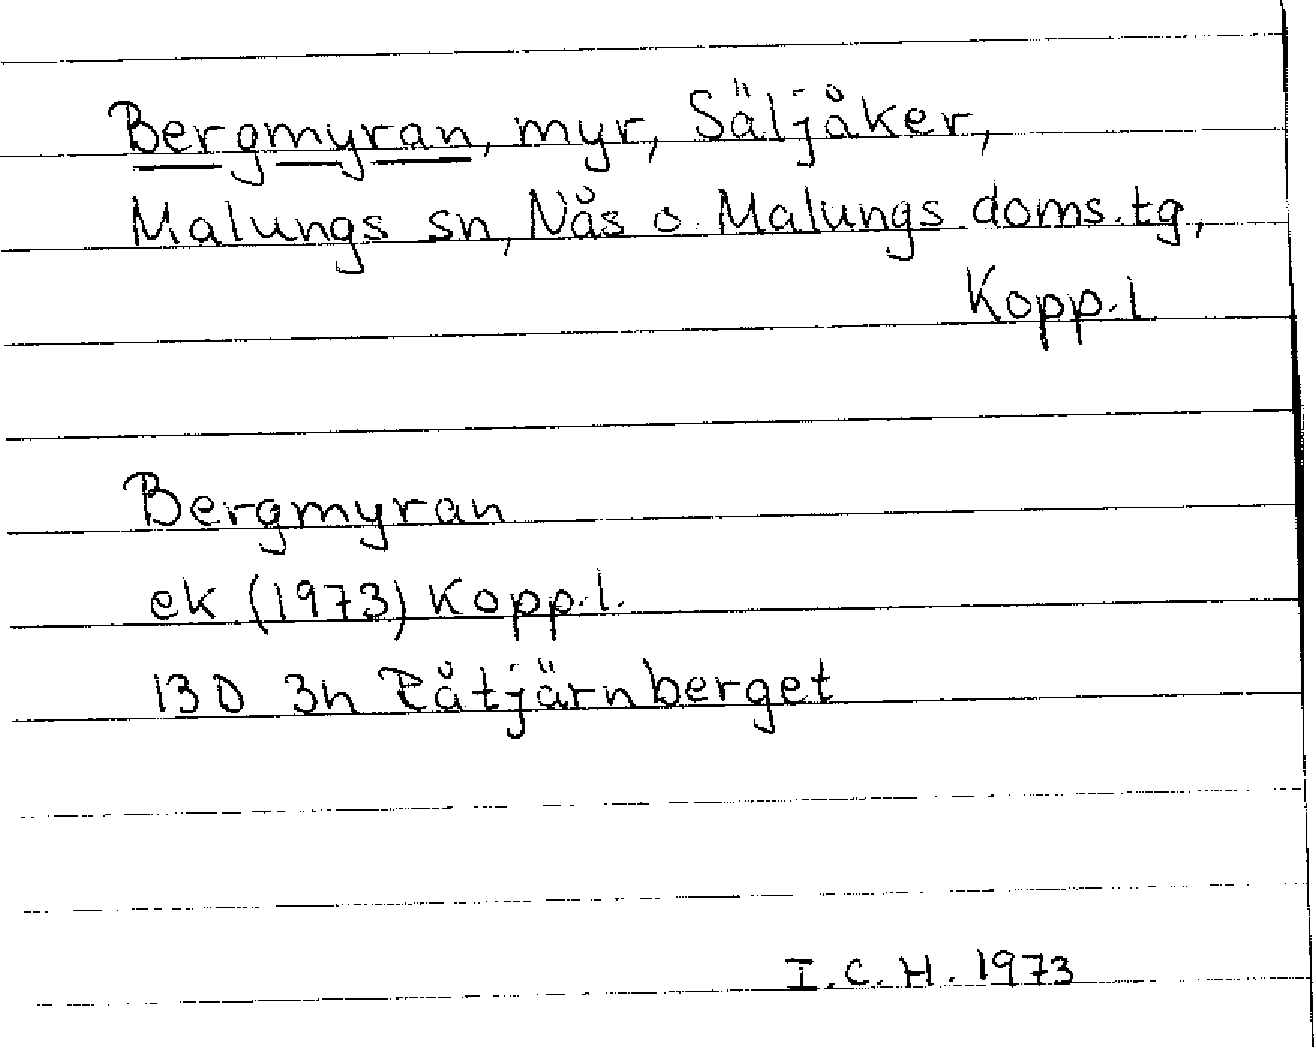 Bergmyran, myr, Säljåker,
Malungs sn, Nås o. Malungs doms.tg,
Kopp.l
Bergmyran
ek (1973) Kopp.l.
13D 3h Råtjärnberget
I.C.H. 1973